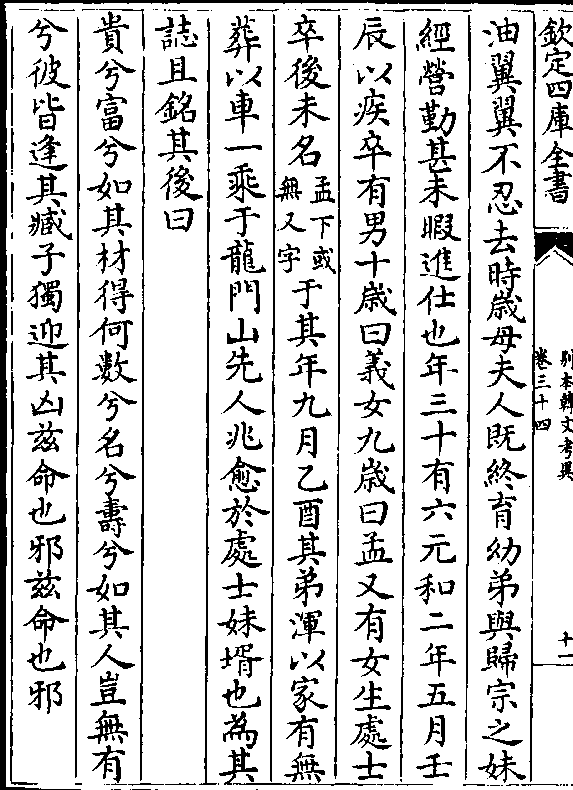 欽定四庫全書
別本韓文考異
卷三十四
十一
油翼翼不忍去時歲母夫人既終育幼弟與歸宗之妹
經營勤甚未暇進仕也年三十有六元和二年五月壬
辰以疾卒有男十歲曰義女九歲曰孟又有女生處士
卒後未名孟下或無又字于其年九月乙酉其弟渾以家有無
葬以車一乘于龍門山先人兆愈於處士妹壻也為其
誌且銘其後曰
貴兮富兮如其材得何數兮名兮夀兮如其人豈無有
兮彼皆逢其臧子獨迎其凶兹命也邪兹命也邪